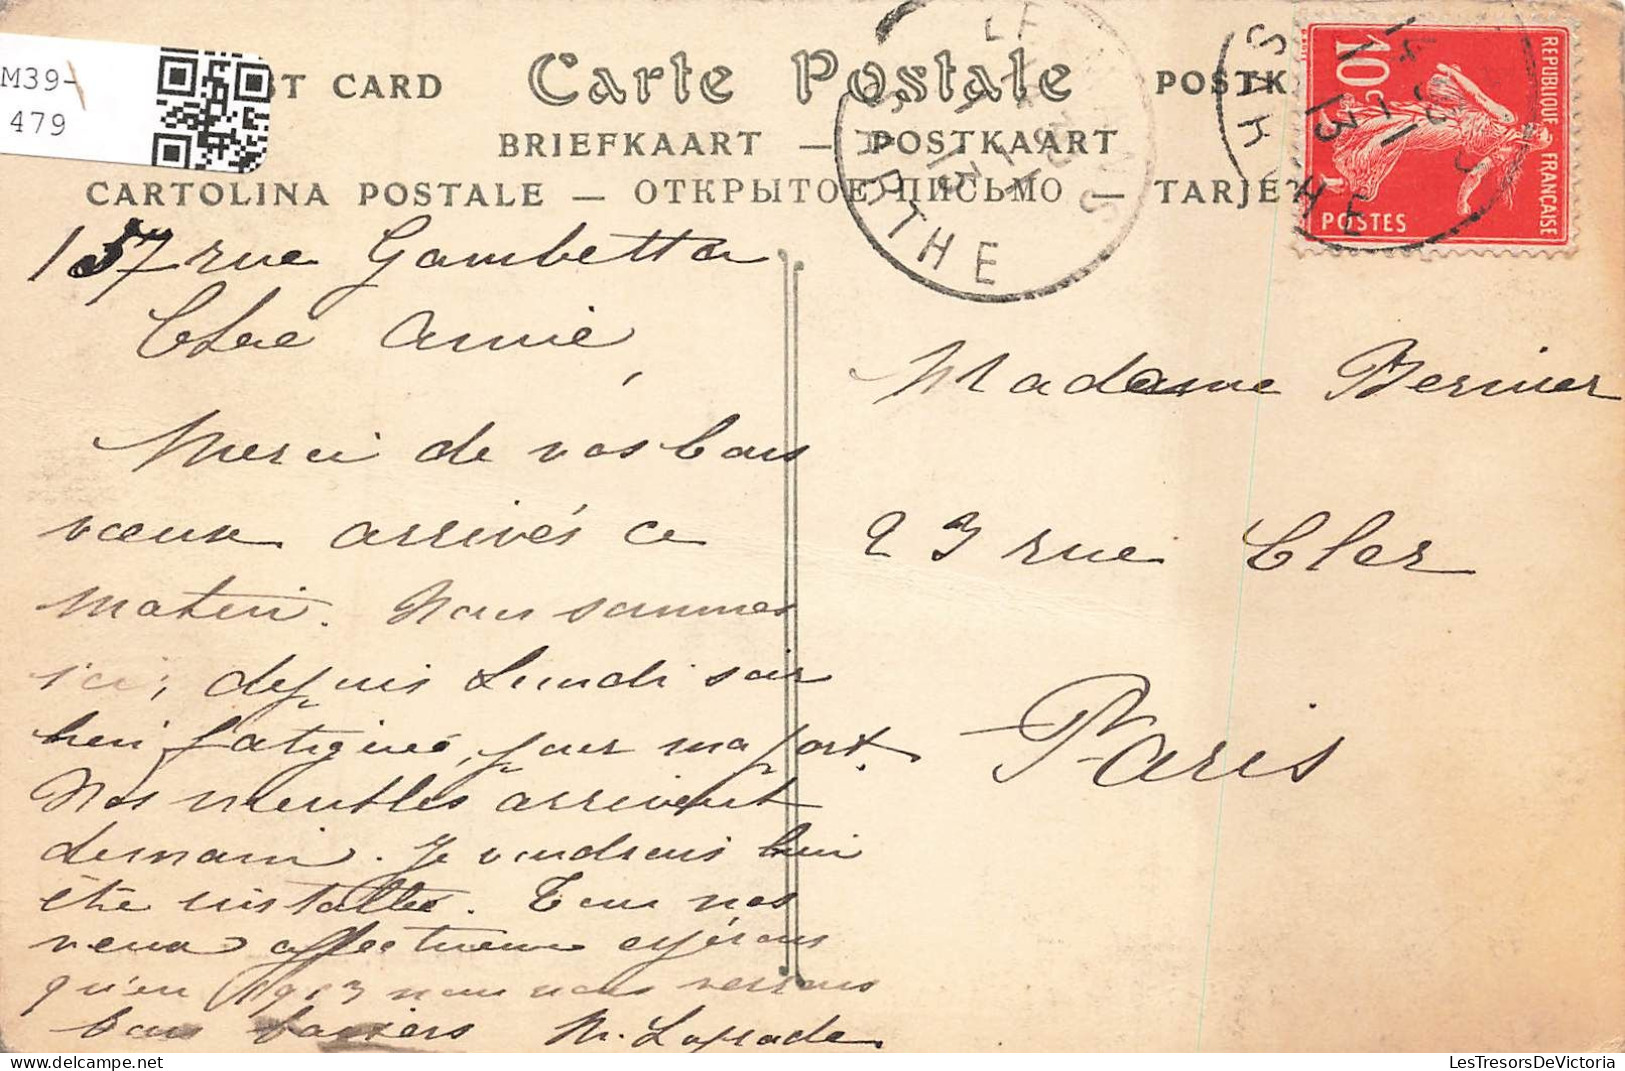 M39-
479
ST CARD Carte Postale POSTK
BRIEFKAART — POSTKAART
CARTOLINA POSTALE — ОТКРЫТОЕ ПИСЬМО — TARJE
REPUBLIQUE FRANÇAISE
10c
POSTES
LE MANS
SARTHE
SARTHE
13
157 rue Gambetta
Chère Amie,
Merci de vos bons
vœux arrivés ce
matin. Nous sommes
ici, depuis Lundi soir
bien fatiguée, pour ma part.
Nos meubles arrivent
demain. Je voudrais bien
être installée. Tous nos
vœux affectueux espérons
qu'en 1913 nous nous verrons
bons baisers M. Laprade
Madame Bernier
23 rue Cler
Paris
LesTresorsDeVictoria.com